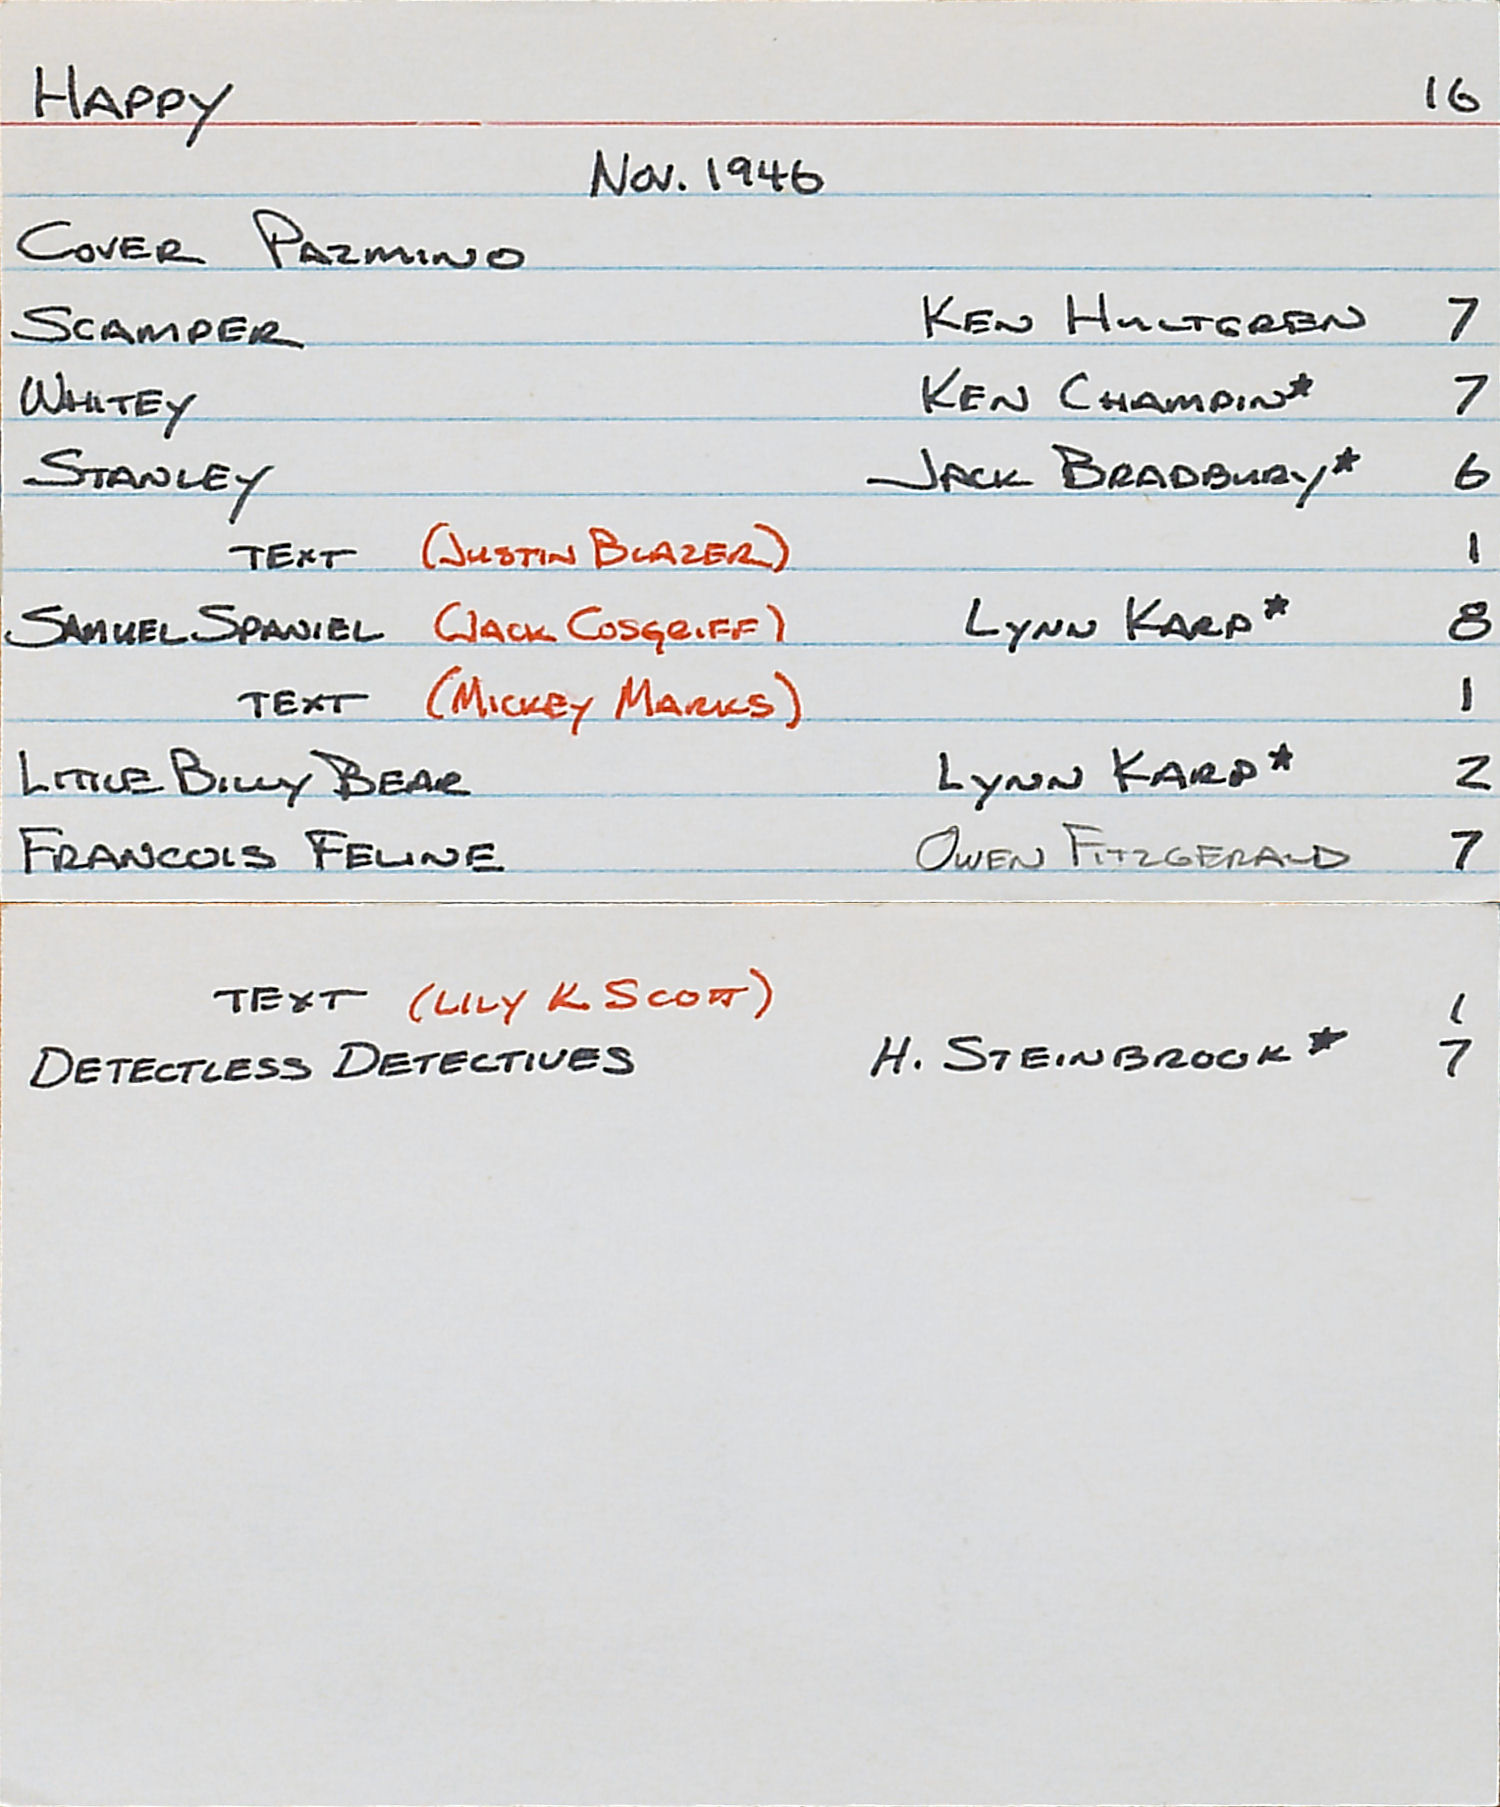 HAPPY 16
Nov. 1946
COVER PAZMINO
SCAMPER KEN HULTGREN 7
WHITEY KEN CHAMPIN* 7
STANLEY JACK BRADBURY* 6
TEXT (JUSTIN BLAZER) 1
SAMUEL SPANIEL (JACK COSGRIFF) LYNN KARP* 8
TEXT (MICKEY MARKS) 1
LITTLE BILLY BEAR LYNN KARP* 2
FRANCOIS FELINE OWEN FITZGERALD 7
TEXT (LILY K SCOTT) 1
DETECTLESS DETECTIVES H. STEINBROOK* 7